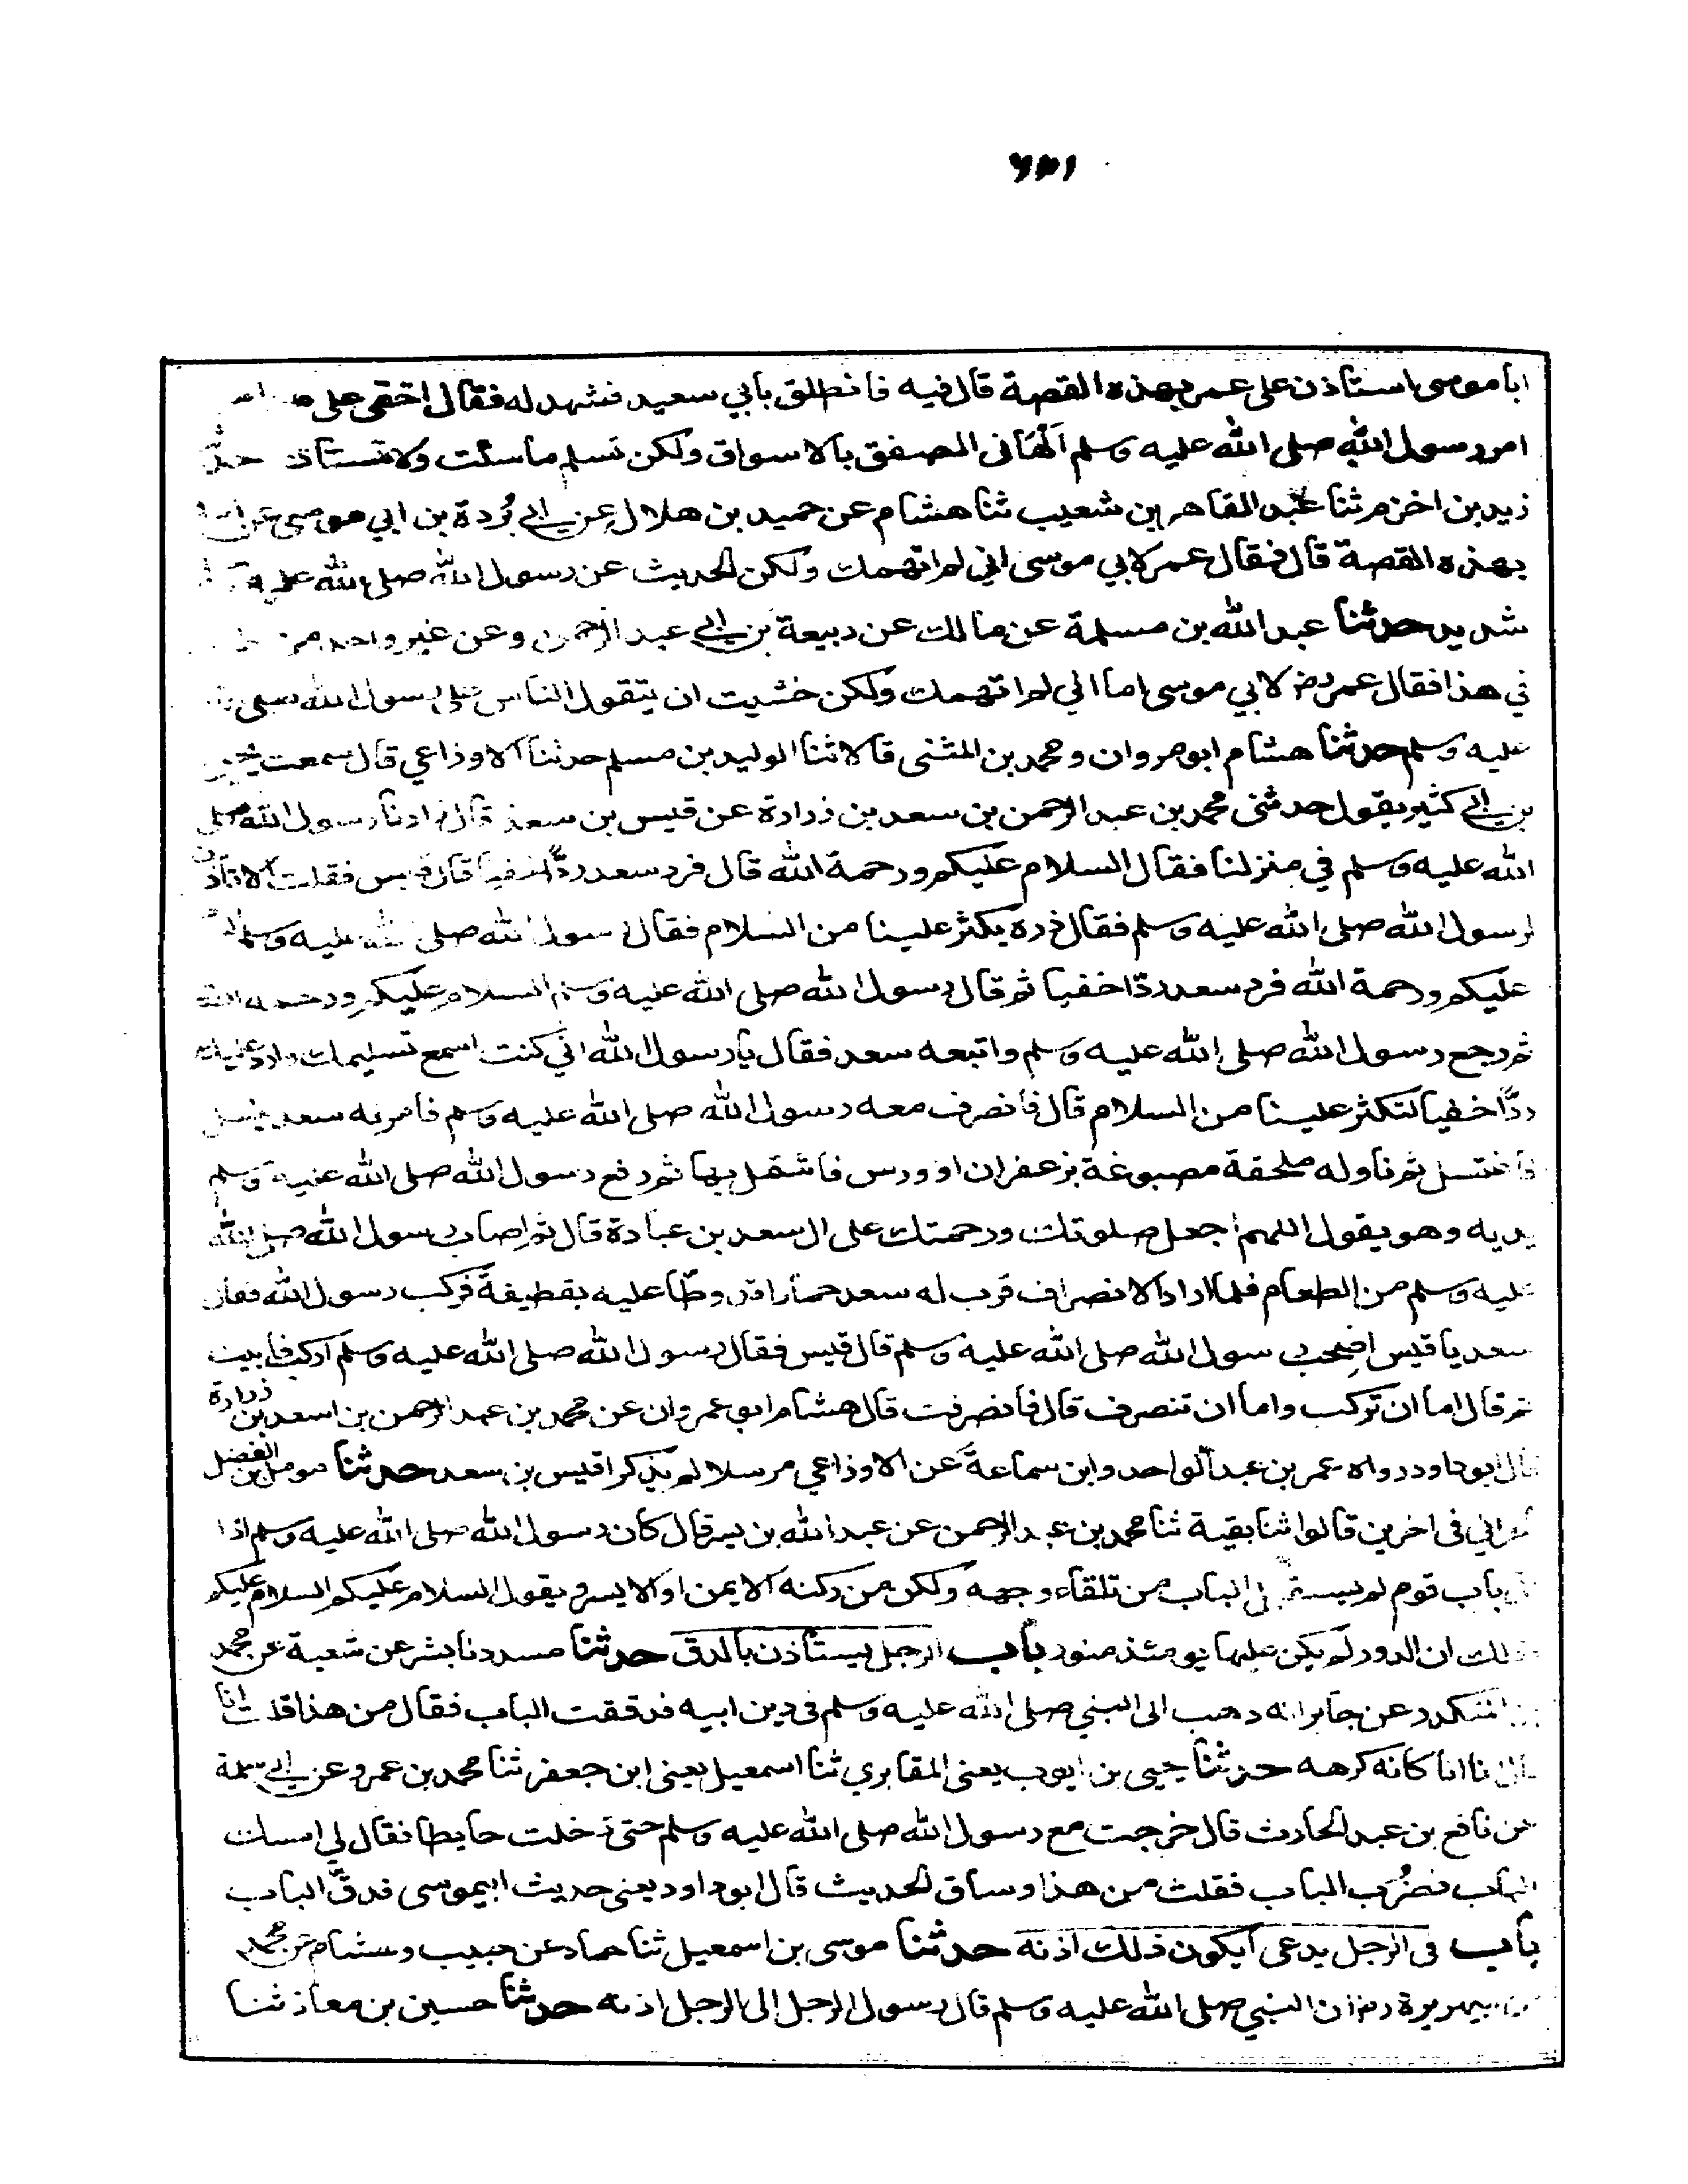 ابا موسى استاذن على عمر بهذه القصة قال فيه فانطلق بابي سعيد فشهد له فقال اخفي علي
امر رسول الله صلى الله عليه وسلم ألهاني الصفق بالاسواق ولكن تسلم ما سئت ولا تستاذن
زيد بن اخزم ثنا عبد القاهر بن شعيب ثنا هشام عن حميد بن هلال عن ابي بُردة بن ابي موسى عن
بهذه القصة قال فقال عمر لابي موسى اني لم اتهمك ولكن الحديث عن رسول الله صلى الله عليه
شديد حدثنا عبد الله بن مسلمة عن مالك عن ربيعة بن ابي عبد الرحمن وعن غير واحد من
في هذا فقال عمر رضـ لابي موسى اما اني لم اتهمك ولكن خشيت ان يتقول الناس على رسول الله صلى
عليه وسلم حدثنا هشام ابو مروان ومحمد بن المثنى قالا ثنا الوليد بن مسلم حدثنا الاوزاعي قال سمعت يحيى
بن ابي كثير يقول حدثني محمد بن عبد الرحمن بن سعد بن زرارة عن قيس بن سعد قال زادنا رسول الله صلى
الله عليه وسلم في منزلنا فقال السلام عليكم ورحمة الله قال فرد سعد ردًّا خفيا قال قيس فقلت الا تاذن
لرسول الله صلى الله عليه وسلم فقال ذره يكثر علينا من السلام فقال رسول الله صلى الله عليه وسلم
عليكم ورحمة الله فرد سعد ردّا خفيا ثم قال رسول الله صلى الله عليه وسلم السلام عليكم ورحمه الله
ثم رجع رسول الله صلى الله عليه وسلم واتبعه سعد فقال يا رسول الله اني كنت اسمع تسليمك وارد عليك
ردًّا خفيا لتكثر علينا من السلام قال فانصرف معه رسول الله صلى الله عليه وسلم فامر له سعد بغسل
فاغتسل ثم ناوله ملحفة مصبوغة بزعفران او ورس فاشتمل بها ثم رفع رسول الله صلى الله عليه وسلم
يديه وهو يقول اللهم اجعل صلوتك ورحمتك على ال سعد بن عبادة قال ثم اصاب رسول الله صلى الله
عليه وسلم من الطعام فلما اراد الانصراف قرب له سعد حمارا قد وطّا عليه بقطيفة فركب رسول الله فقال
سعد يا قيس اصحب رسول الله صلى الله عليه وسلم قال قيس فقال رسول الله صلى الله عليه وسلم اركب فابيت
ثم قال اما ان تركب واما ان تنصرف قال فانصرفت قال هشام ابو عمروان عن محمد بن عبد الرحمن بن اسعد بن زرارة
قال ابو داود رواه عمر بن عبد الواحد وابن سماعة عن الاوزاعي مرسلا لم يذكرا قيس بن سعد حدثنا مومل بن الفضل
الحراني في اخرين قالوا ثنا بقية ثنا محمد بن عبد الرحمن عن عبد الله بن بسر قال كان رسول الله صلى الله عليه وسلم اذا
اتى باب قوم لم يستقبل الباب من تلقاء وجهه ولكن من ركنه الايمن او الايسر ويقول السلام عليكم السلام عليكم
وذلك ان الدور لم يكن عليها يومئذ ستور باب الرجل يستاذن بالدق حدثنا مسدد نا بشر عن شعبة عن محمد
بن المنكدر عن جابر انه ذهب الى النبي صلى الله عليه وسلم في دين ابيه فدققت الباب فقال من هذا قلت انا
قال انا انا كانه كرهه حدثنا يحيى بن ايوب يعني المقابري ثنا اسمعيل يعني ابن جعفر ثنا محمد بن عمرو عن ابي سلمة
عن نافع بن عبد الحارث قال خرجت مع رسول الله صلى الله عليه وسلم حتى دخلت حايطا فقال لي امسك
الباب فضُرب الباب فقلت من هذا وساق الحديث قال ابو داود يعني حديث ابيموسى فدقّ الباب
باب في الرجل يدعى ايكون ذلك اذنه حدثنا موسى بن اسمعيل ثنا حماد عن حبيب وهشام عن محمد
عن ابيهريرة رضـ ان النبي صلى الله عليه وسلم قال رسول الرجل الى الرجل اذنه حدثنا حسين بن معاذ ثنا